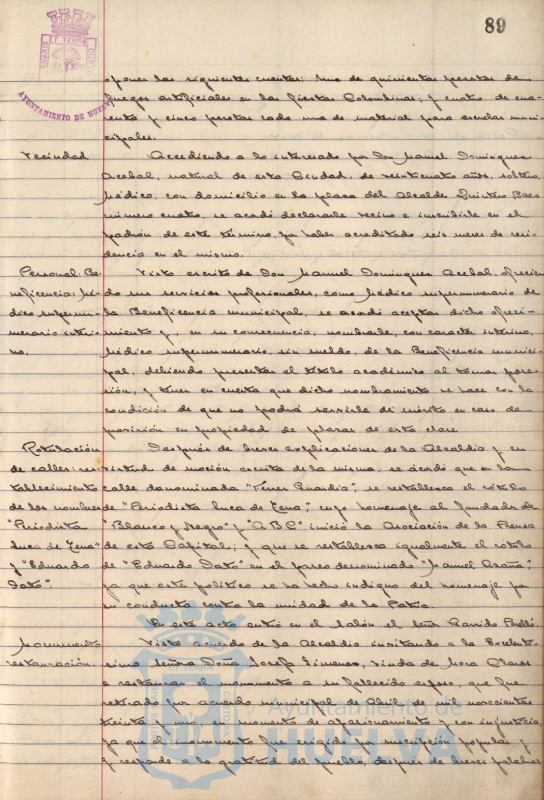 89
AYUNTAMIENTO DE HUELVA
oponer las siguientes cuentas: Una de quinientas pesetas de
fuegos artificiales en las fiestas Colombinas; y cuatro de cua-
renta y cinco pesetas cada una de material para escuelas muni-
cipales.
Vecindad
Accediendo a lo interesado por Don Manuel Dominguez
Acebal, natural de esta Ciudad, de veinticuatro años, soltero,
Médico, con domicilio en la plaza del Alcalde Quintero Baez
número cuatro, se acordó declararle vecino e inscribirle en el
padrón de este término, por haber acreditado seis meses de resi-
dencia en el mismo.
Personal: Be-
neficencia: Mé-
dico supernu-
merario interi-
no.
Visto escrito de Don Manuel Dominguez Acebal, ofrecien-
do sus servicios profesionales, como Médico supernumerario de
la Beneficencia municipal, se acordó aceptar dicho ofreci-
miento y, en su consecuencia, nombrarle, con caracter interino,
Médico supernumerario, sin sueldo, de la Beneficencia munici-
pal, debiendo presentar el título académico al tomar pose-
sión, y tener en cuenta que dicho nombramiento se hace con la
condición de que no podrá servirle de mérito en caso de
provisión en propiedad de plazas de esta clase.
Rotulación
de calles: res-
tablecimiento
de los nombres
"Periodista
Luca de Tena"
y "Eduardo
Dato".
Después de breves explicaciones de la Alcaldía y en
virtud de moción escrita de la misma, se acordó que en la
calle denominada "Ferrer Guardia", se restablezca el rótulo
de "Periodista Luca de Tena", cuyo homenaje al fundador de
"Blanco y Negro" y "A B C" inició la Asociación de la Prensa
de esta Capital; y que se restablezca igualmente el rótulo
de "Eduardo Dato" en el paseo denominado "Manuel Azaña",
ya que este político se ha hecho indigno del homenaje por
su conducta contra la unidad de la Patria.
En este acto entró en el salón el Señor Garrido Perelló.
Monumento
restauración.
Visto acuerdo de la Alcaldía invitando a la Excelentí-
sima Señora Doña Josefa Jimenez, viuda de Mora Claros
a restaurar el monumento a su fallecido esposo, que fue
retirado por acuerdo municipal de Abril de mil novecientos
treinta y uno en momento de apasionamiento y con injusticia,
ya que el monumento fue erigido por suscripción popular y
y responde a la gratitud del pueblo, después de breves palabras
Ayuntamiento de
HUELVA